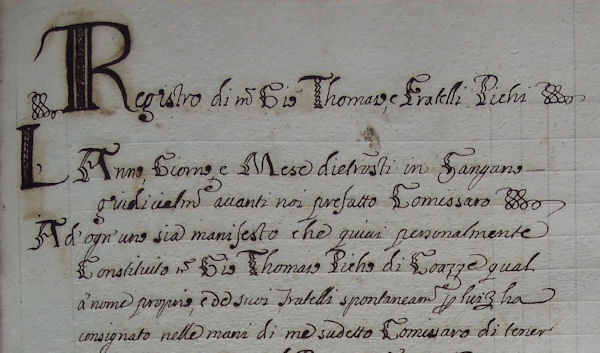 Registro di mr Gio Thomaso, e Fratelli Pichi
L'Anno Giorno, e Mese dietrosti in Sangano
giudicialmte auanti noi prefatto Comissaro
Ad ogn'uno sia manifesto che quiui personalmente
Constituito mr Gio Thomaso Picho di Coazze qual
a nome proprio, e de suoi fratelli spontaneamte ha
consignato nelle mani di me sudetto Comissaro di tener